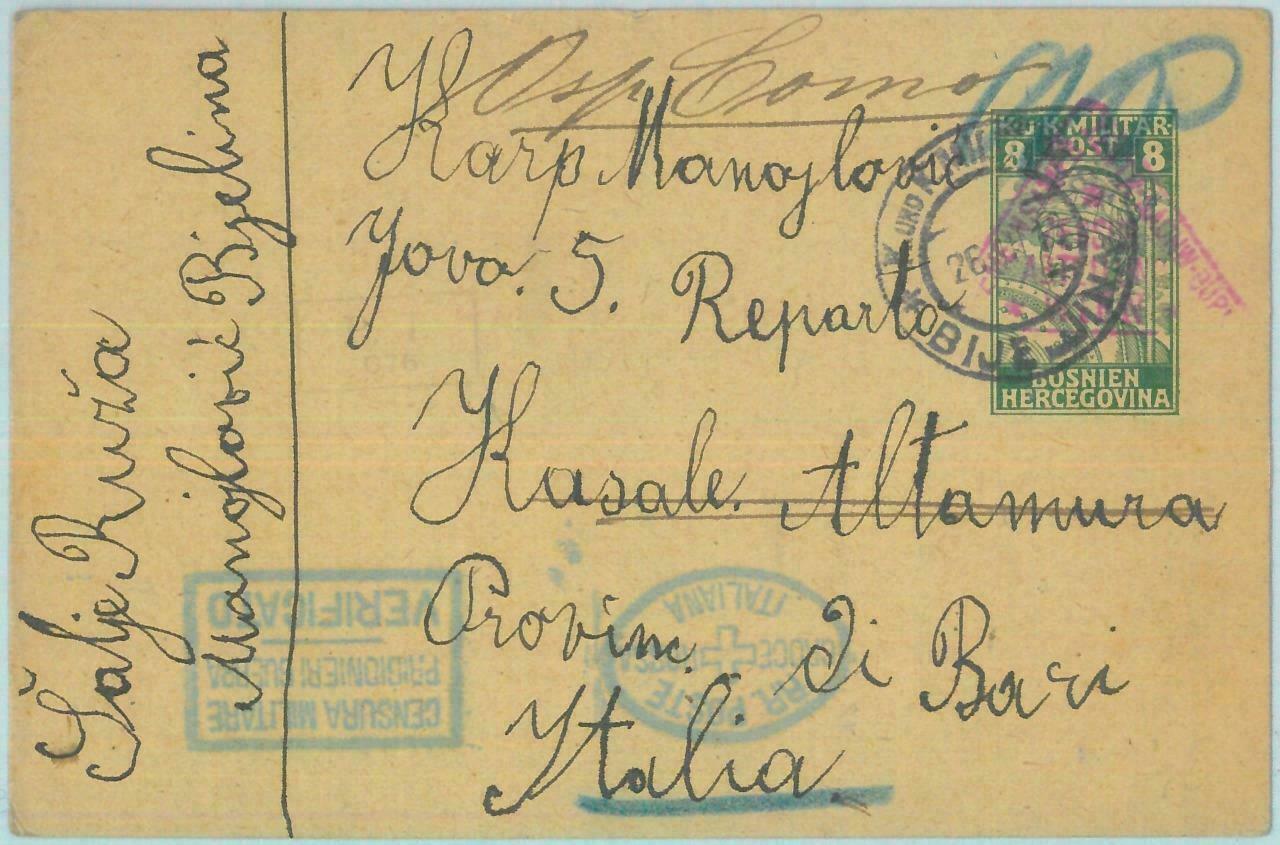 Osp. Como
Karp Manojlović
Jova. 5. Reparto
Kasale. Altamura
Provinc. di Bari
Italia
Šalje Ruža
Manojlović Bijelina
K.U.K. MILITÄR-
POST
8 8
BOSNIEN
HERCEGOVINA
K UND K
BIJELJINA
26
CENSURA MILITARE
PRIGIONIERI GUERRA
VERIFICATO
CROCE ROSSA
ITALIANA